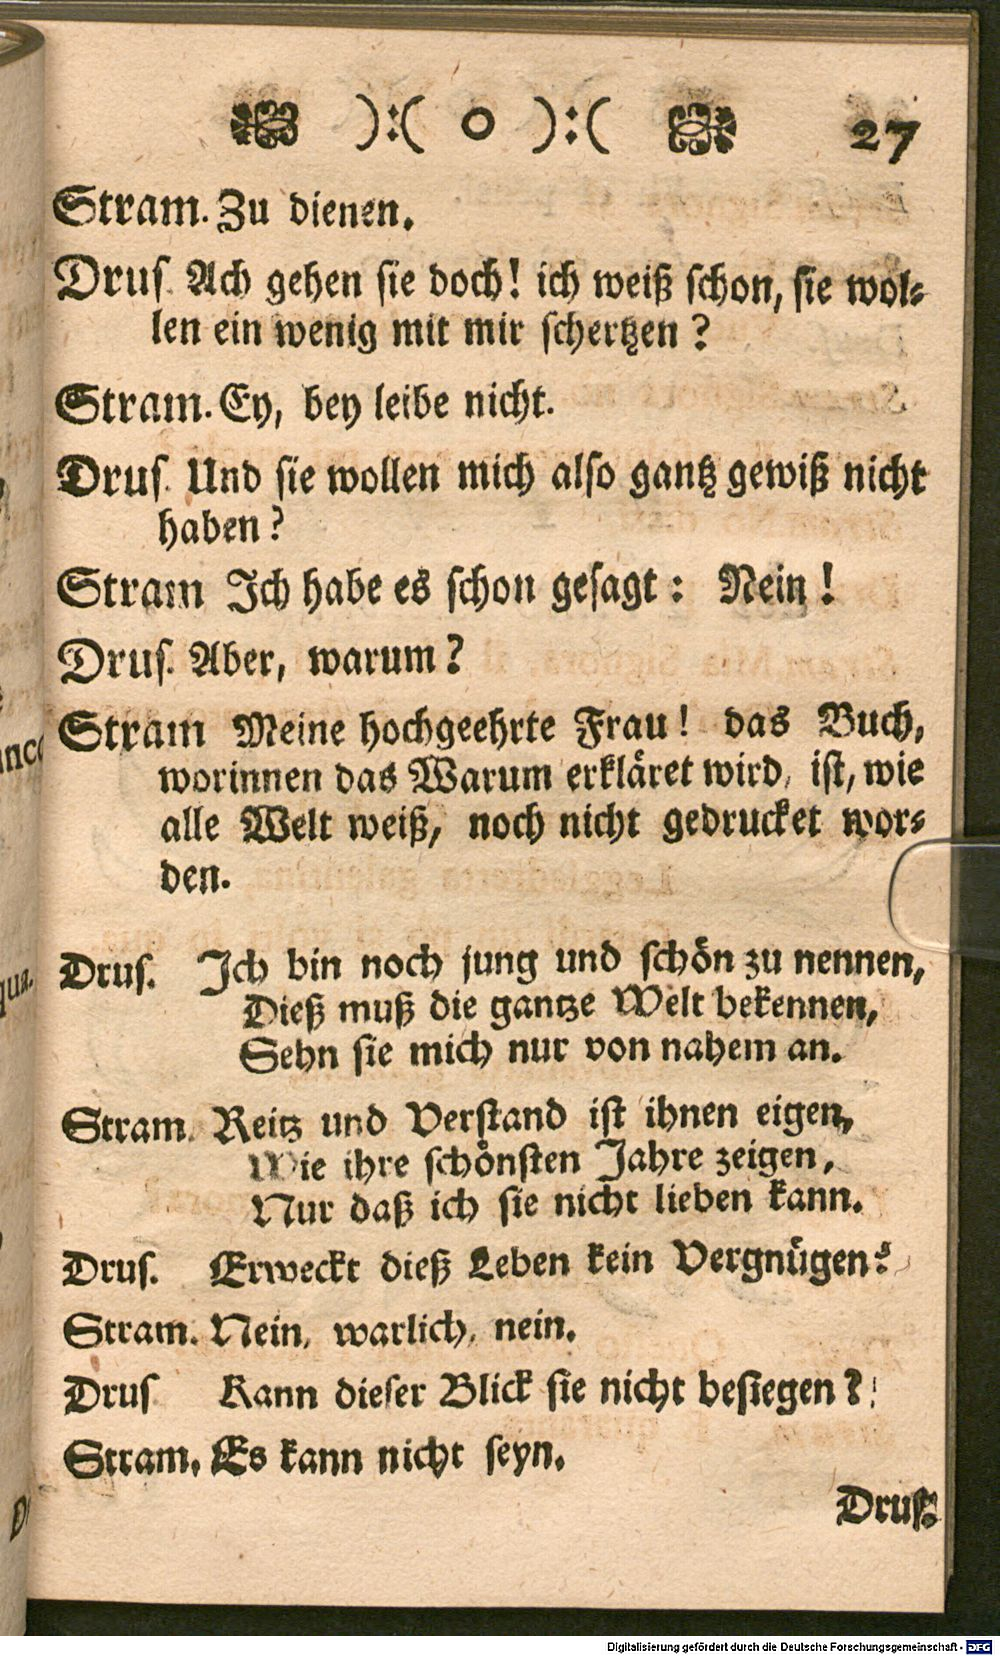 ):( o ):( 27
Stram. Zu dienen.
Drus. Ach gehen sie doch! ich weiß schon, sie wol⸗
len ein wenig mit mir schertzen?
Stram. Ey, bey leibe nicht.
Drus. Und sie wollen mich also gantz gewiß nicht
haben?
Stram Ich habe es schon gesagt: Nein!
Drus. Aber, warum?
Stram Meine hochgeehrte Frau! das Buch,
worinnen das Warum erkläret wird, ist, wie
alle Welt weiß, noch nicht gedrucket wor⸗
den.
Drus. Ich bin noch jung und schön zu nennen,
Dieß muß die gantze Welt bekennen,
Sehn sie mich nur von nahem an.
Stram. Reitz und Verstand ist ihnen eigen,
Wie ihre schönsten Jahre zeigen,
Nur daß ich sie nicht lieben kann.
Drus. Erweckt dieß Leben kein Vergnügen?
Stram. Nein, warlich, nein.
Drus Kann dieser Blick sie nicht besiegen?
Stram. Es kann nicht seyn.
Drus.
Digitalisierung gefördert durch die Deutsche Forschungsgemeinschaft - DFG